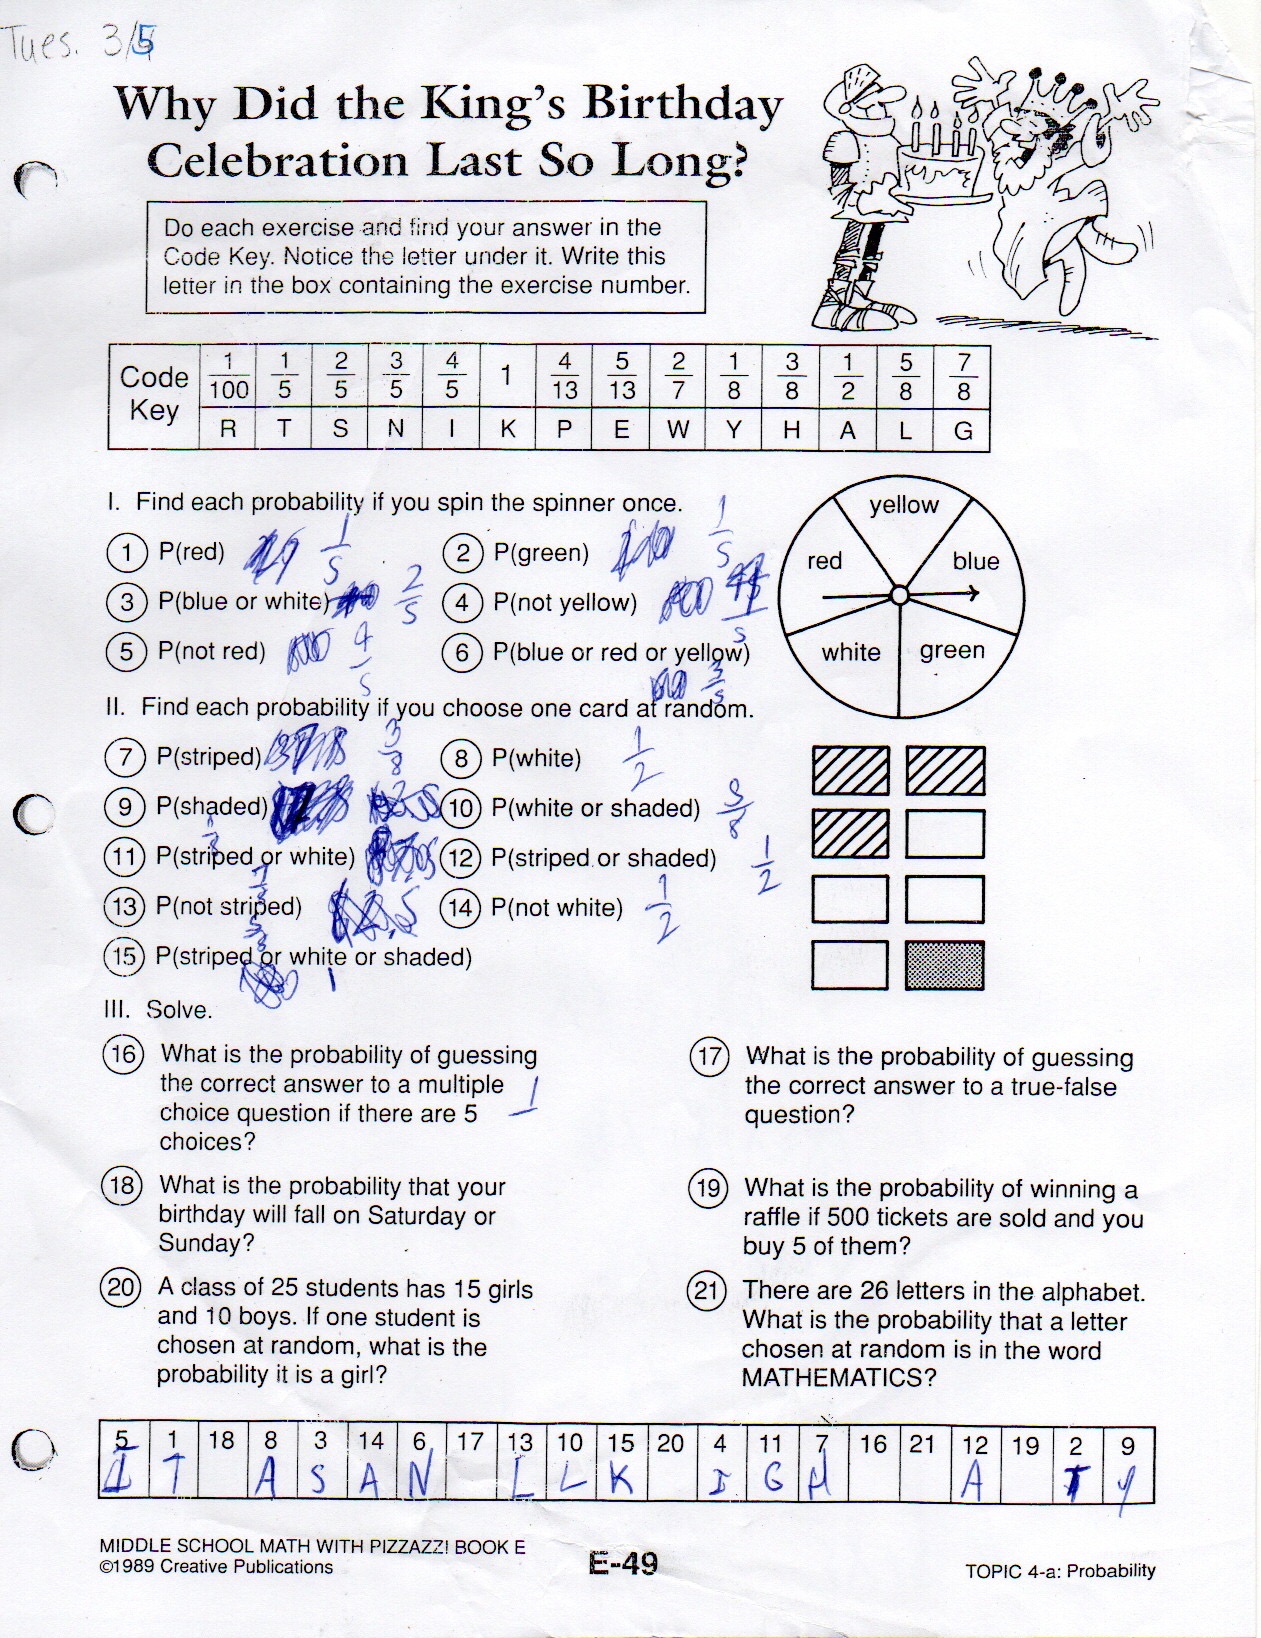 Tues. 3/5
Why Did the King's Birthday
Celebration Last So Long?
Do each exercise and find your answer in the
Code Key. Notice the letter under it. Write this
letter in the box containing the exercise number.
Code Key 1/100 1/5 2/5 3/5 4/5 1 4/13 5/13 2/7 1/8 3/8 1/2 5/8 7/8
R T S N I K P E W Y H A L G
I. Find each probability if you spin the spinner once.
1 P(red) 1/5
2 P(green) 1/5
3 P(blue or white) 2/5
4 P(not yellow)
5 P(not red) 4/5
6 P(blue or red or yellow) 3/5
yellow
red
blue
white
green
II. Find each probability if you choose one card at random.
7 P(striped) 3/8
8 P(white) 1/2
9 P(shaded) 1/8
10 P(white or shaded)
11 P(striped or white)
12 P(striped or shaded) 1/2
13 P(not striped) 5/8
14 P(not white) 1/2
15 P(striped or white or shaded) 1
III. Solve.
16 What is the probability of guessing
the correct answer to a multiple
choice question if there are 5
choices?
1
17 What is the probability of guessing
the correct answer to a true-false
question?
18 What is the probability that your
birthday will fall on Saturday or
Sunday?
19 What is the probability of winning a
raffle if 500 tickets are sold and you
buy 5 of them?
20 A class of 25 students has 15 girls
and 10 boys. If one student is
chosen at random, what is the
probability it is a girl?
21 There are 26 letters in the alphabet.
What is the probability that a letter
chosen at random is in the word
MATHEMATICS?
5 1 18 8 3 14 6 17 13 10 15 20 4 11 7 16 21 12 19 2 9
I T A S A N L L K I G H A T Y
MIDDLE SCHOOL MATH WITH PIZZAZZ! BOOK E
©1989 Creative Publications
E-49
TOPIC 4-a: Probability